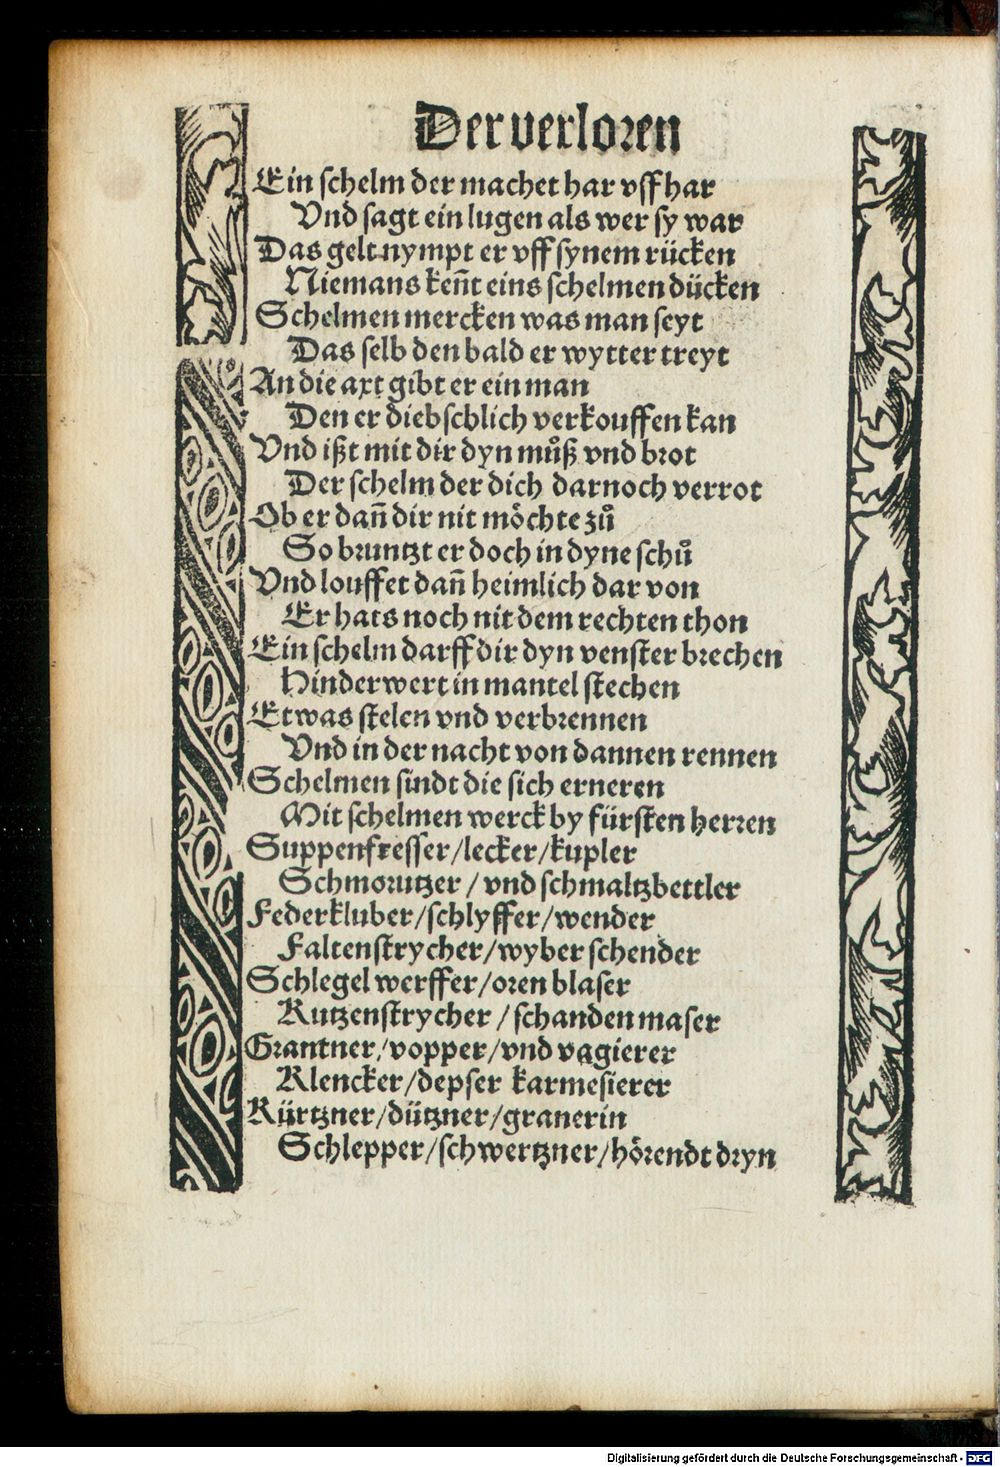 Der verloren
Ein schelm der machet har vff har
Vnd sagt ein lugen als wer sy war
Das gelt nympt er vff synem rücken
Niemans keñt eins schelmen dücken
Schelmen mercken was man seyt
Das selb den bald er wytter treyt
An die axt gibt er ein man
Den er diebschlich verkouffen kan
Vnd ißt mit dir dyn můß vnd brot
Der schelm der dich darnoch verrot
Ob er dañ dir nit möchte zů
So bruntzt er doch in dyne schů
Vnd louffet dañ heimlich dar von
Er hats noch nit dem rechten thon
Ein schelm darff dir dyn venster brechen
Hinderwert in mantel stechen
Etwas stelen vnd verbrennen
Vnd in der nacht von dannen rennen
Schelmen sindt die sich erneren
Mit schelmen werck by fürsten herren
Suppenfresser/lecker/kupler
Schmorutzer/vnd schmaltzbettler
Federkluber/schlyffer/wender
Faltenstrycher/wyber schender
Schlegel werffer/oren blaser
Kutzenstrycher/schanden maser
Grantner/vopper/vnd vagierer
Klencker/depser karmesierer
Kürtzner/dützner/granerin
Schlepper/schwertzner/hörendt dryn
Digitalisierung gefördert durch die Deutsche Forschungsgemeinschaft - DFG